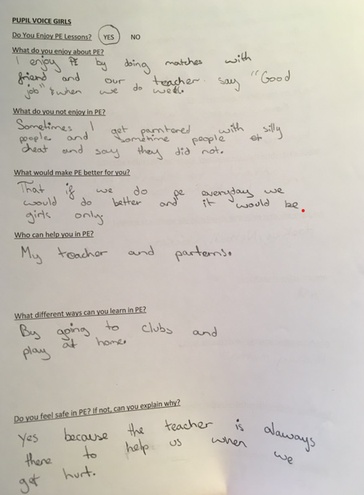 PUPIL VOICE GIRLS
Do You Enjoy PE Lessons? YES NO
What do you enjoy about PE?
I enjoy PE by doing matches with
friend and our teacher say "Good
job" when we do well.
What do you not enjoy in PE?
Sometimes I get parntored with silly
people and sometime people
cheat and say they did not.
What would make PE better for you?
That if we do pe everyday we
would do better and it would be
girls only
Who can help you in PE?
My teacher and parterns.
What different ways can you learn in PE?
By going to clubs and
play at home
Do you feel safe in PE? If not, can you explain why?
Yes because the teacher is alaways
there to help us when we
get hurt.